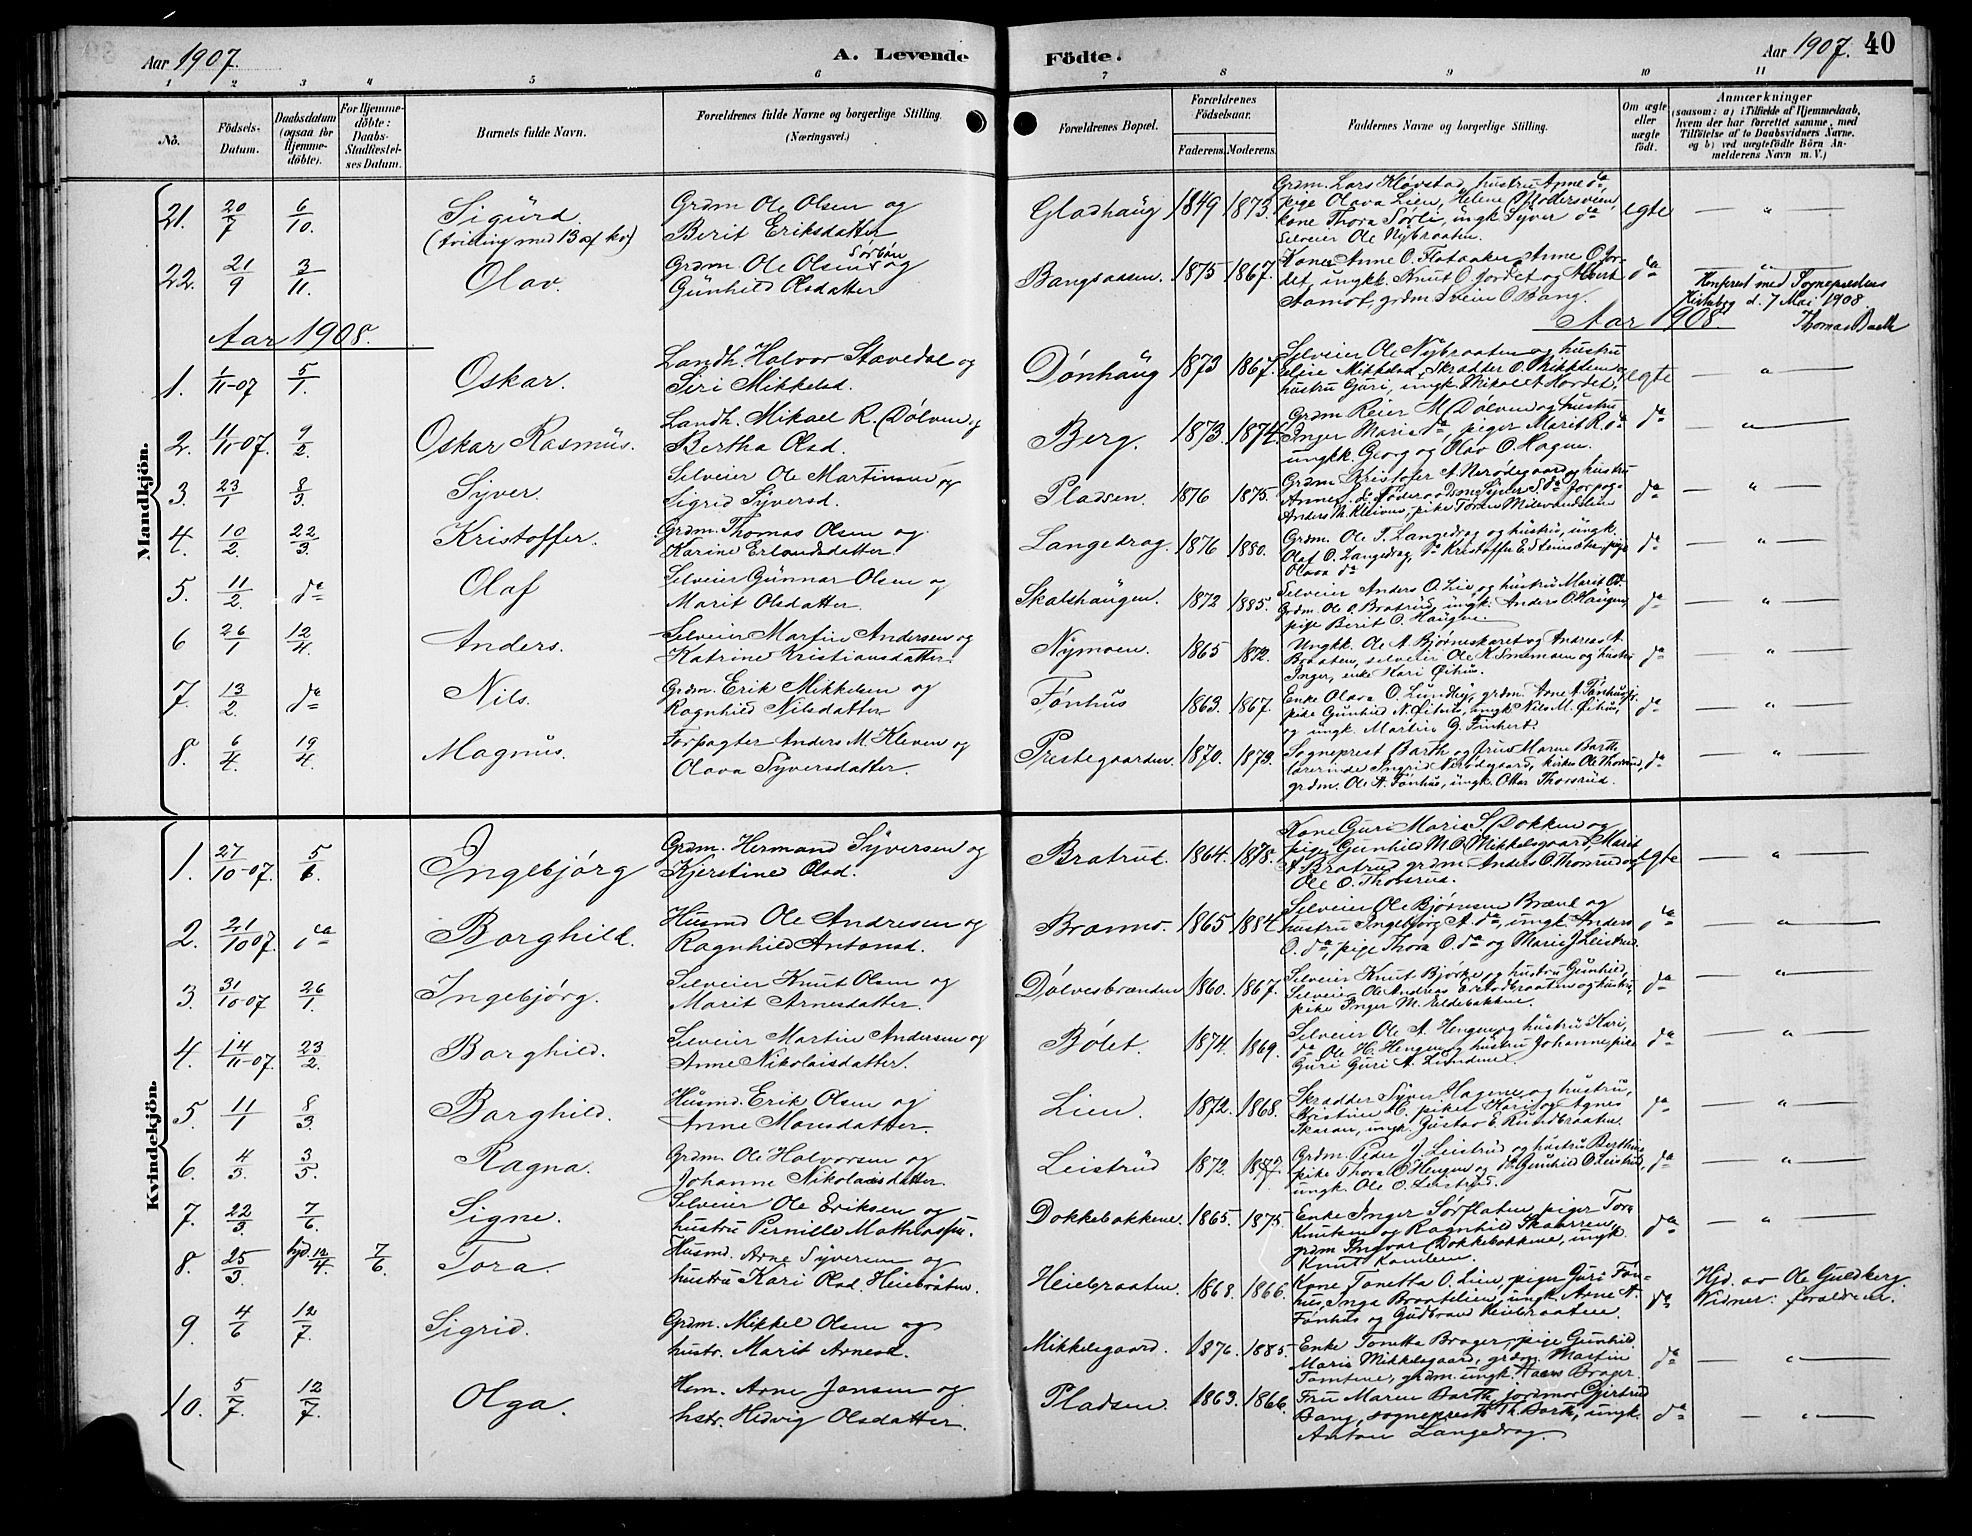 Aar 1907.
A. Levende
Födte.
Aar 1907. 40
1 2 3 4 5 6 7 8 9 10 11
No.
Födsels-Datum.
Daabsdatum (ogsaa for Hjemme-döbte).
For Hjemme-döbte: Daabs-Stadfæstel-ses Datum.
Barnets fulde Navn.
Forældrenes fulde Navne og borgerlige Stilling. (Næringsvei.)
Forældrenes Bopæl.
Forældrenes Födselsaar.
Faderens. Moderens.
Faddernes Navne og borgerlige Stilling.
Om ægte eller uægte födt.
Anmærkninger
(saasom: a) i Tilfælde af Hjemmedaab, hvem der har forrettet samme, med Tilföielse af to Daabsvidners Navne. og b) ved uægtefödte Börn Anmelderens Navn m. V.)
Mandkjön.
21. 20/7 6/10. Sigurd. (tvilling med 13 af kv) Grdm Ole Olsen og Berit Eriksdatter Gladhaug 1849 1873. Grdm. Lars Kløvstad, hustru Anne da, pige Olava Lien, kone Thora Sørli, ungk. Syver da Selveier Ole Nybraaten. egte — " —
22. 21/9 3/11. Olav. Grdm. Ole Olsen Sørbøn og Gunhild Olsdatter Bangsaasen. 1875 1867. Kone Anne O. Flataaker, Anne O. Jordet, ungkk. Knut O. Jordet og Aamot, grdm Svein O. Bang. da — " —
Konfereret med Sogneprestens Kirkebog d. 7 Mai 1908
Thomas Barth
Aar 1908. Aar 1908.
1. 1/11-07 5/1. Oskar. Landh. Halvor Stavedal og Siri Mikkelsd. Dønhaug 1873 1867. Selveier Ole Nybraaten og hustru Mikkelsd, Skrædder O. Mikkelsen og hustru Guri, ungk. egte — " —
2. 11/11-07. 9/2. Oskar Rasmus. Landh. Mikael R. Dølven og Bertha Olsd. Berg. 1873. 1874. Grdm Reier M. Dølven og hustru Inger Marie da, piger Marit R. da ungkk. Georg og Olav O. Hagen. da — " —
3. 23/1 8/3. Syver. Selveier Ole Martinsen og Sigrid Syversd. Pladsen. 1876 1875. Grdm Kristofer A. Nerødegaard og hustru Anne, Syver S. da, forpag. Anders M. Kleven, pike da — " —
4. 10/2. 22/3. Kristoffer. Grdm. Thomas Olsen og Karine Erlandsdatter. Langedrag. 1876 1880. Grdm. O. T. Langedrag og hustru, ungk. Olaf O. Langedrag, da Kristoffer E. Steinsæter, pige Olava da da — " —
5. 11/2 da Olaf Selveier Gunnar Olsen og Marit Olsdatter. Skalshaugen. 1872 1885. Selveier Anders O. Lie, og hustru Marit O. Grdm. Ole O. Bratrud, ungk. Anders O. Haugen, pige Berit O. Haugen. da — " —
6 26/1 12/4. Anders. Selveier Martin Andersen og Katrine Kristiansdatter. Nymoen. 1865 1872. Ungkk. Ole A. Bjørneskaret og Andreas A. Braaten, selveier Ole K. Smemoen og hustru Inger, enke Kari Øihus. da — " —
7. 13/2. da Nils. Grdm. Erik Mikkelsen og Ragnhild Nilsdatter Fønhus 1863. 1867. Enke Olava O. Lundby, grdm. Arne A. Fønhus, pike Gunhild N. Øihus, ungk. Nils M. Øihus, og ungk. Martin G. da — " —
8. 6/4. 19/4. Magnus. Forpagter Anders M. Kleven og Olava Syversdatter. Prestegaarden 1870. 1873. Sogneprest Barth og frue Maren Barth, lærerinde Ingrid Nerødegaard, kirkes. Ole Thorsrud, grdm. Ole A. Fønhus, ungk. Ottar Thorsrud. da — " —
Kvindekjön.
1. 27/10-07. 5/1. Ingebjørg Grdm. Hermand Syversen og Kjerstine Olsd. Bratrud. 1864. 1878. Kone Guri Maria S. Dokken og pige Gunhild M. O. Mikkelsgaard, Marit Bratrud grdm. Anders O. Thorsrud og Ole O. Thorsrud. egte — " —
2. 21/10 07. da Borghild. Husmd Ole Andresen og Ragnhild Antonsd. Bromma. 1865 1884. Selveier Ole Bjørnsen Bræne og hustru Ingebjørg A. da, ungk. Anders O. da, pige Thora O. da og Marie J. Leistrud. da — " —
3. 31/10-07 26/1. Ingebjørg. Selveier Knut Olsen og Marit Arnesdatter. Dølvesbrænden 1860. 1867. Selveier Knut Bjørke og hustru Gunhild, Selveier Ole Andreas og hustru, pike Inger M. Eldebakken. da — " —
4. 14/11-07. 23/2. Borghild. Selveier Martin Andersen og Anne Nikolaisdatter. Bølet. 1874. 1869. Selveier Ole A. Hengen og hustru Kari, da Ole H. Hengen og hustru Johanne, pike Guri Guri A. Lundene. da — " —
5. 11/1 8/3. Borghild. Husmd. Erik Olsen og Anne Monsdatter. Lien. 1872. 1868. Skrædder Syver Hagene og hustru, Kristine H. piker Kari og Agnes Skaran, ungk. Gustav E. Rundbraaten. da — " —
6. 4/3. 3/5. Ragna. Grdm. Ole Halvorsen og Johanne Nikolaisdatter. Leistrud 1872. 1877. Grdm. Peder J. Leistrud og hustru Berthe, pike Thora O. Hengen og da Gunhild O. Leistrud, ungk. Ole O. Leistrud. da — " —
7. 22/3. 7/6. Signe. Selveier Ole Eriksen og hustru Pernille Mathiasdtr. Dokkebakkene. 1865. 1875. Enke Inger Sørflaten, piger Tora Knutsen og Ragnhild Skaarren, grdm Ingvar Dokkebakkene, ungk. Knut da — " —
8. 25/3. hjd. 12/4. 7/6. Tora. Husmd. Arne Syversen og hustru Kari Olsd. Heiebråten. Heiebraaten. 1868. 1866. Kone Tonetta O. Lien, piger Guri Fønhus, Inga Braatelien, ungk. Arne N. Fønhus og Gudbrand Heiebraaten. da Hjd. av Ole Guldberg. Vidner: forældrene.
9. 4/6 12/7. Sigrid. Grdm. Mikkel Olsen og hustr. Marit Arnesd. Mikkelsgaard. 1876. 1885. Enke Tonetta Brager, pige Gunhild Marie Mikkelsgaard, grdm. Martin Tomtene, grdm. ungk. Hans Brager. da — " —
10. 5/7. 12/7. Olga. Hsm. Arne Jansen og hstr. Hedvig Olsdatter. Pladsen. 1863. 1866. Fru Maren Barth, jordmor Gjertrud Bang, sogneprest Th. Barth, ungk. Anton Langedrag. da — " —